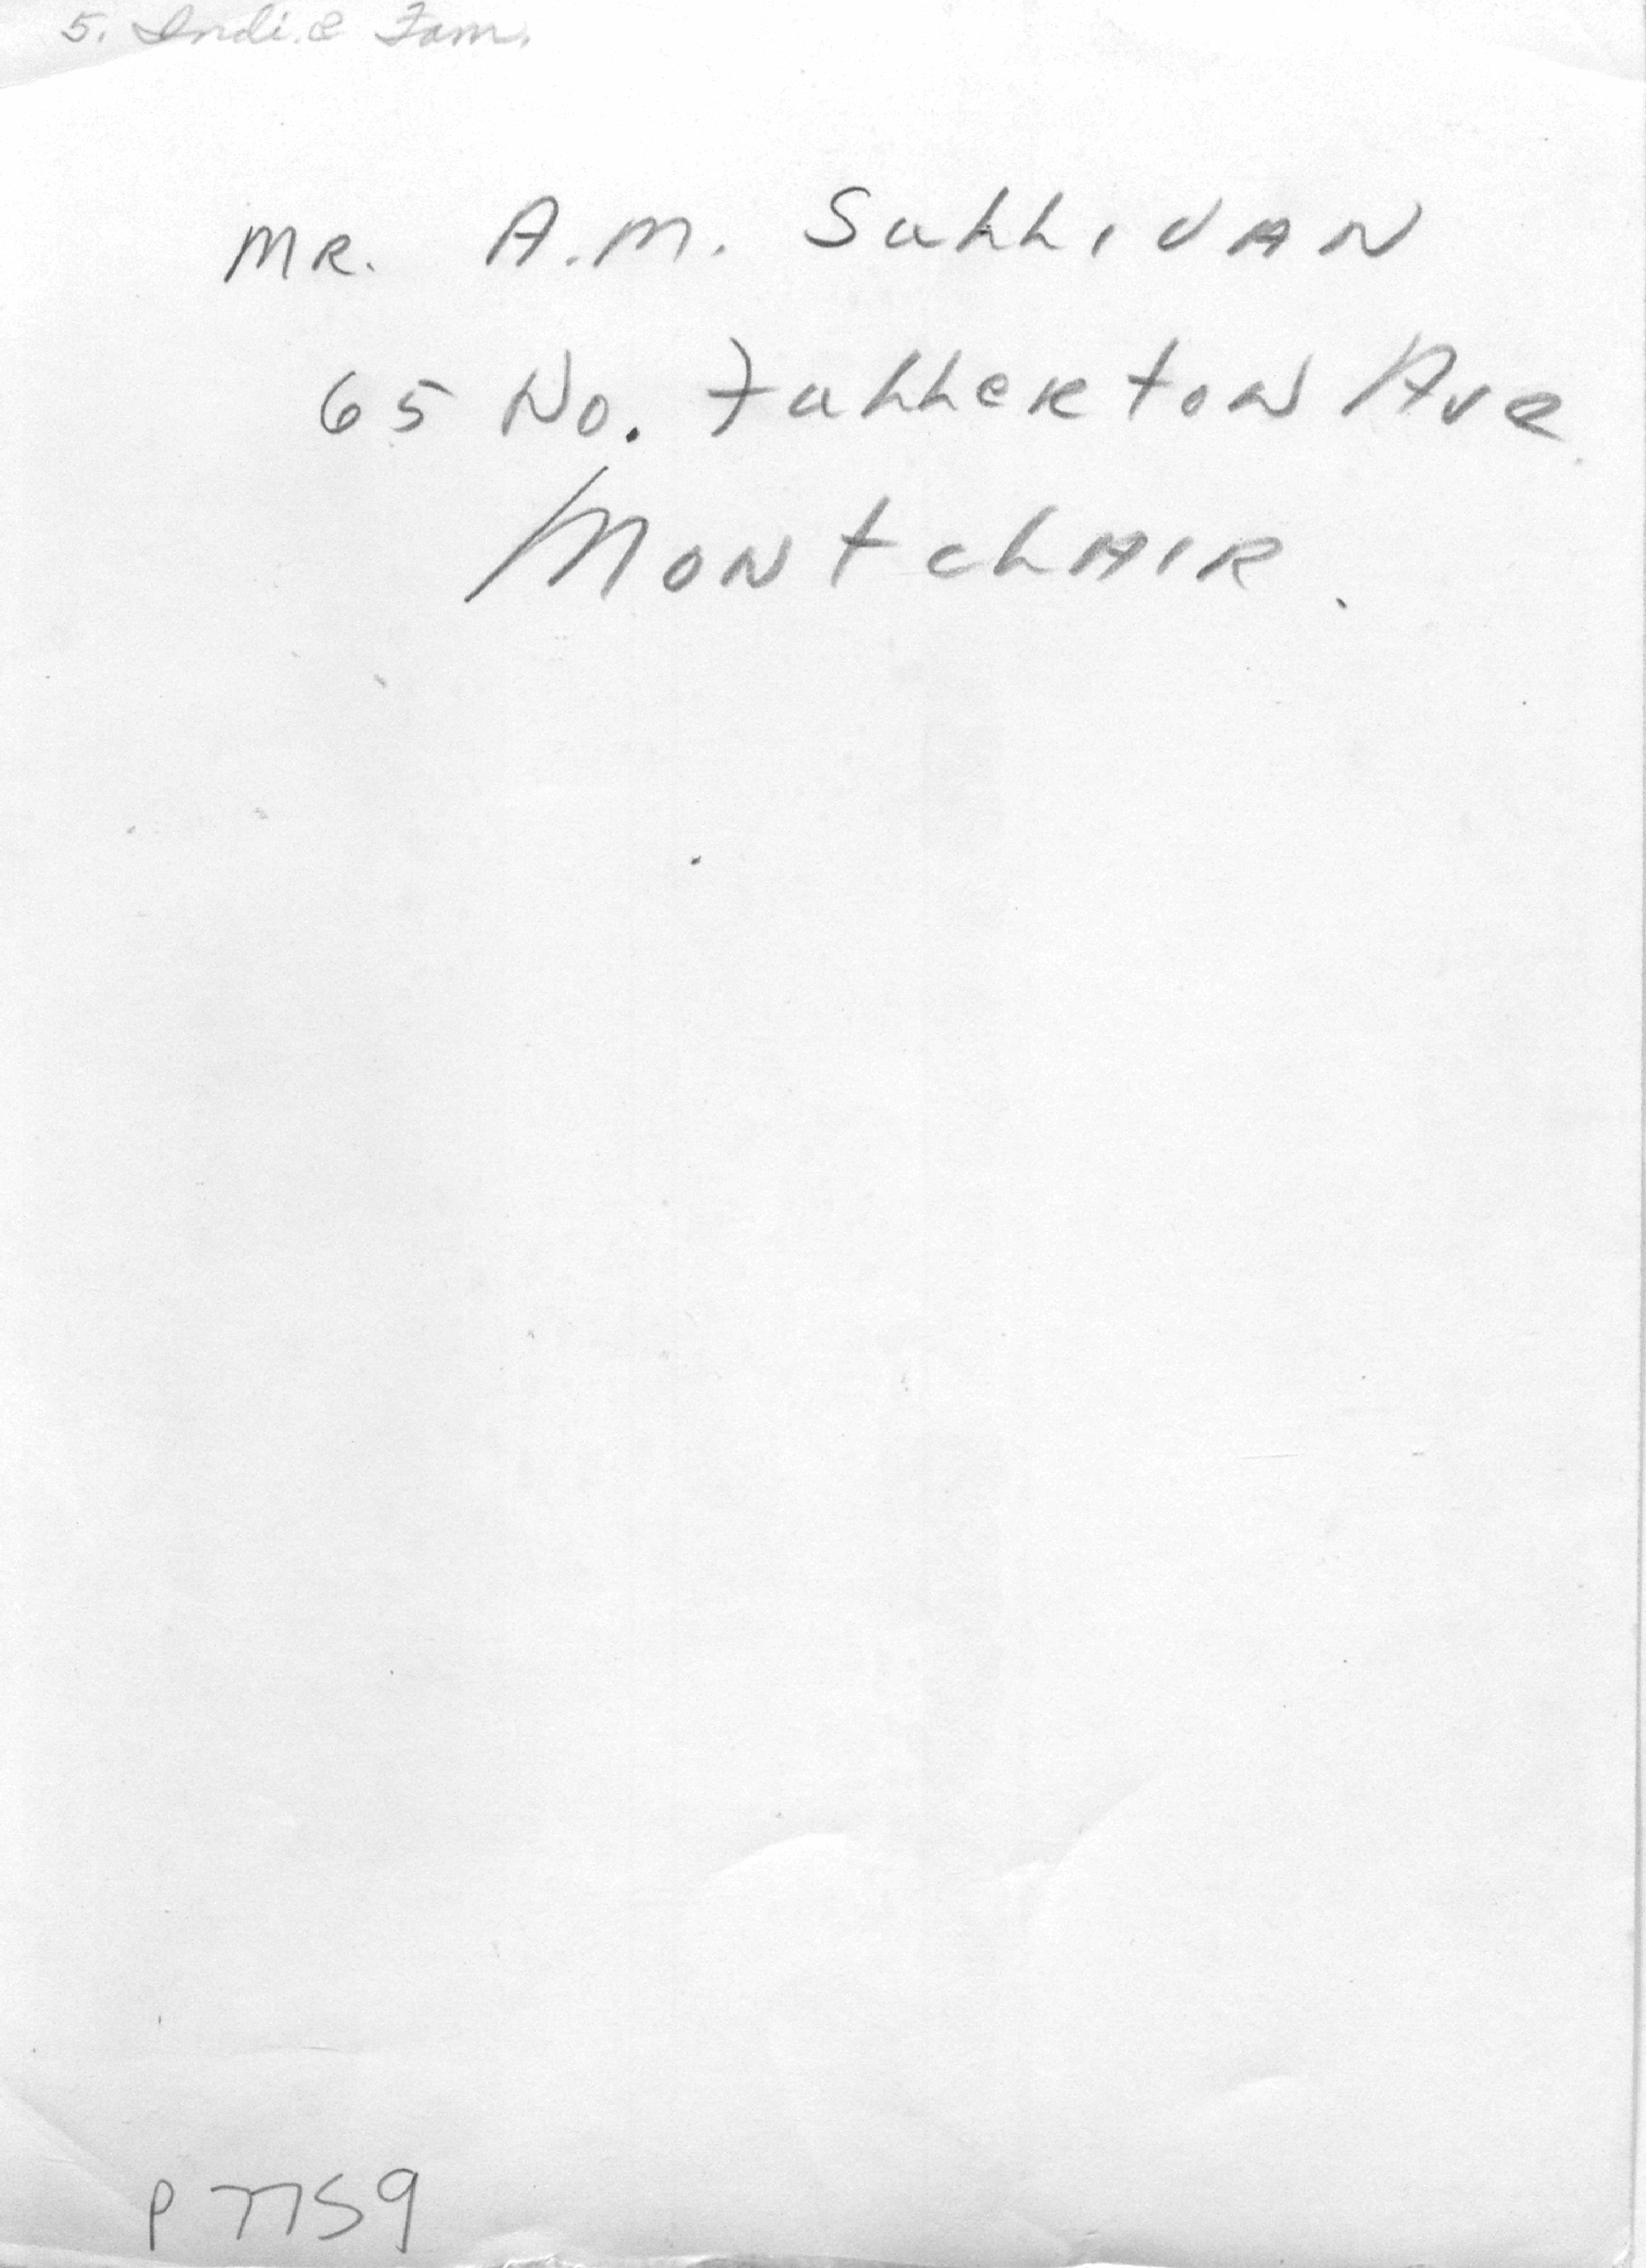 5. Indi. & Fam.
MR. A.M. SuLLIVAN
65 No. FuLLeRtoN Ave
MoNtcLAIR.
P7759